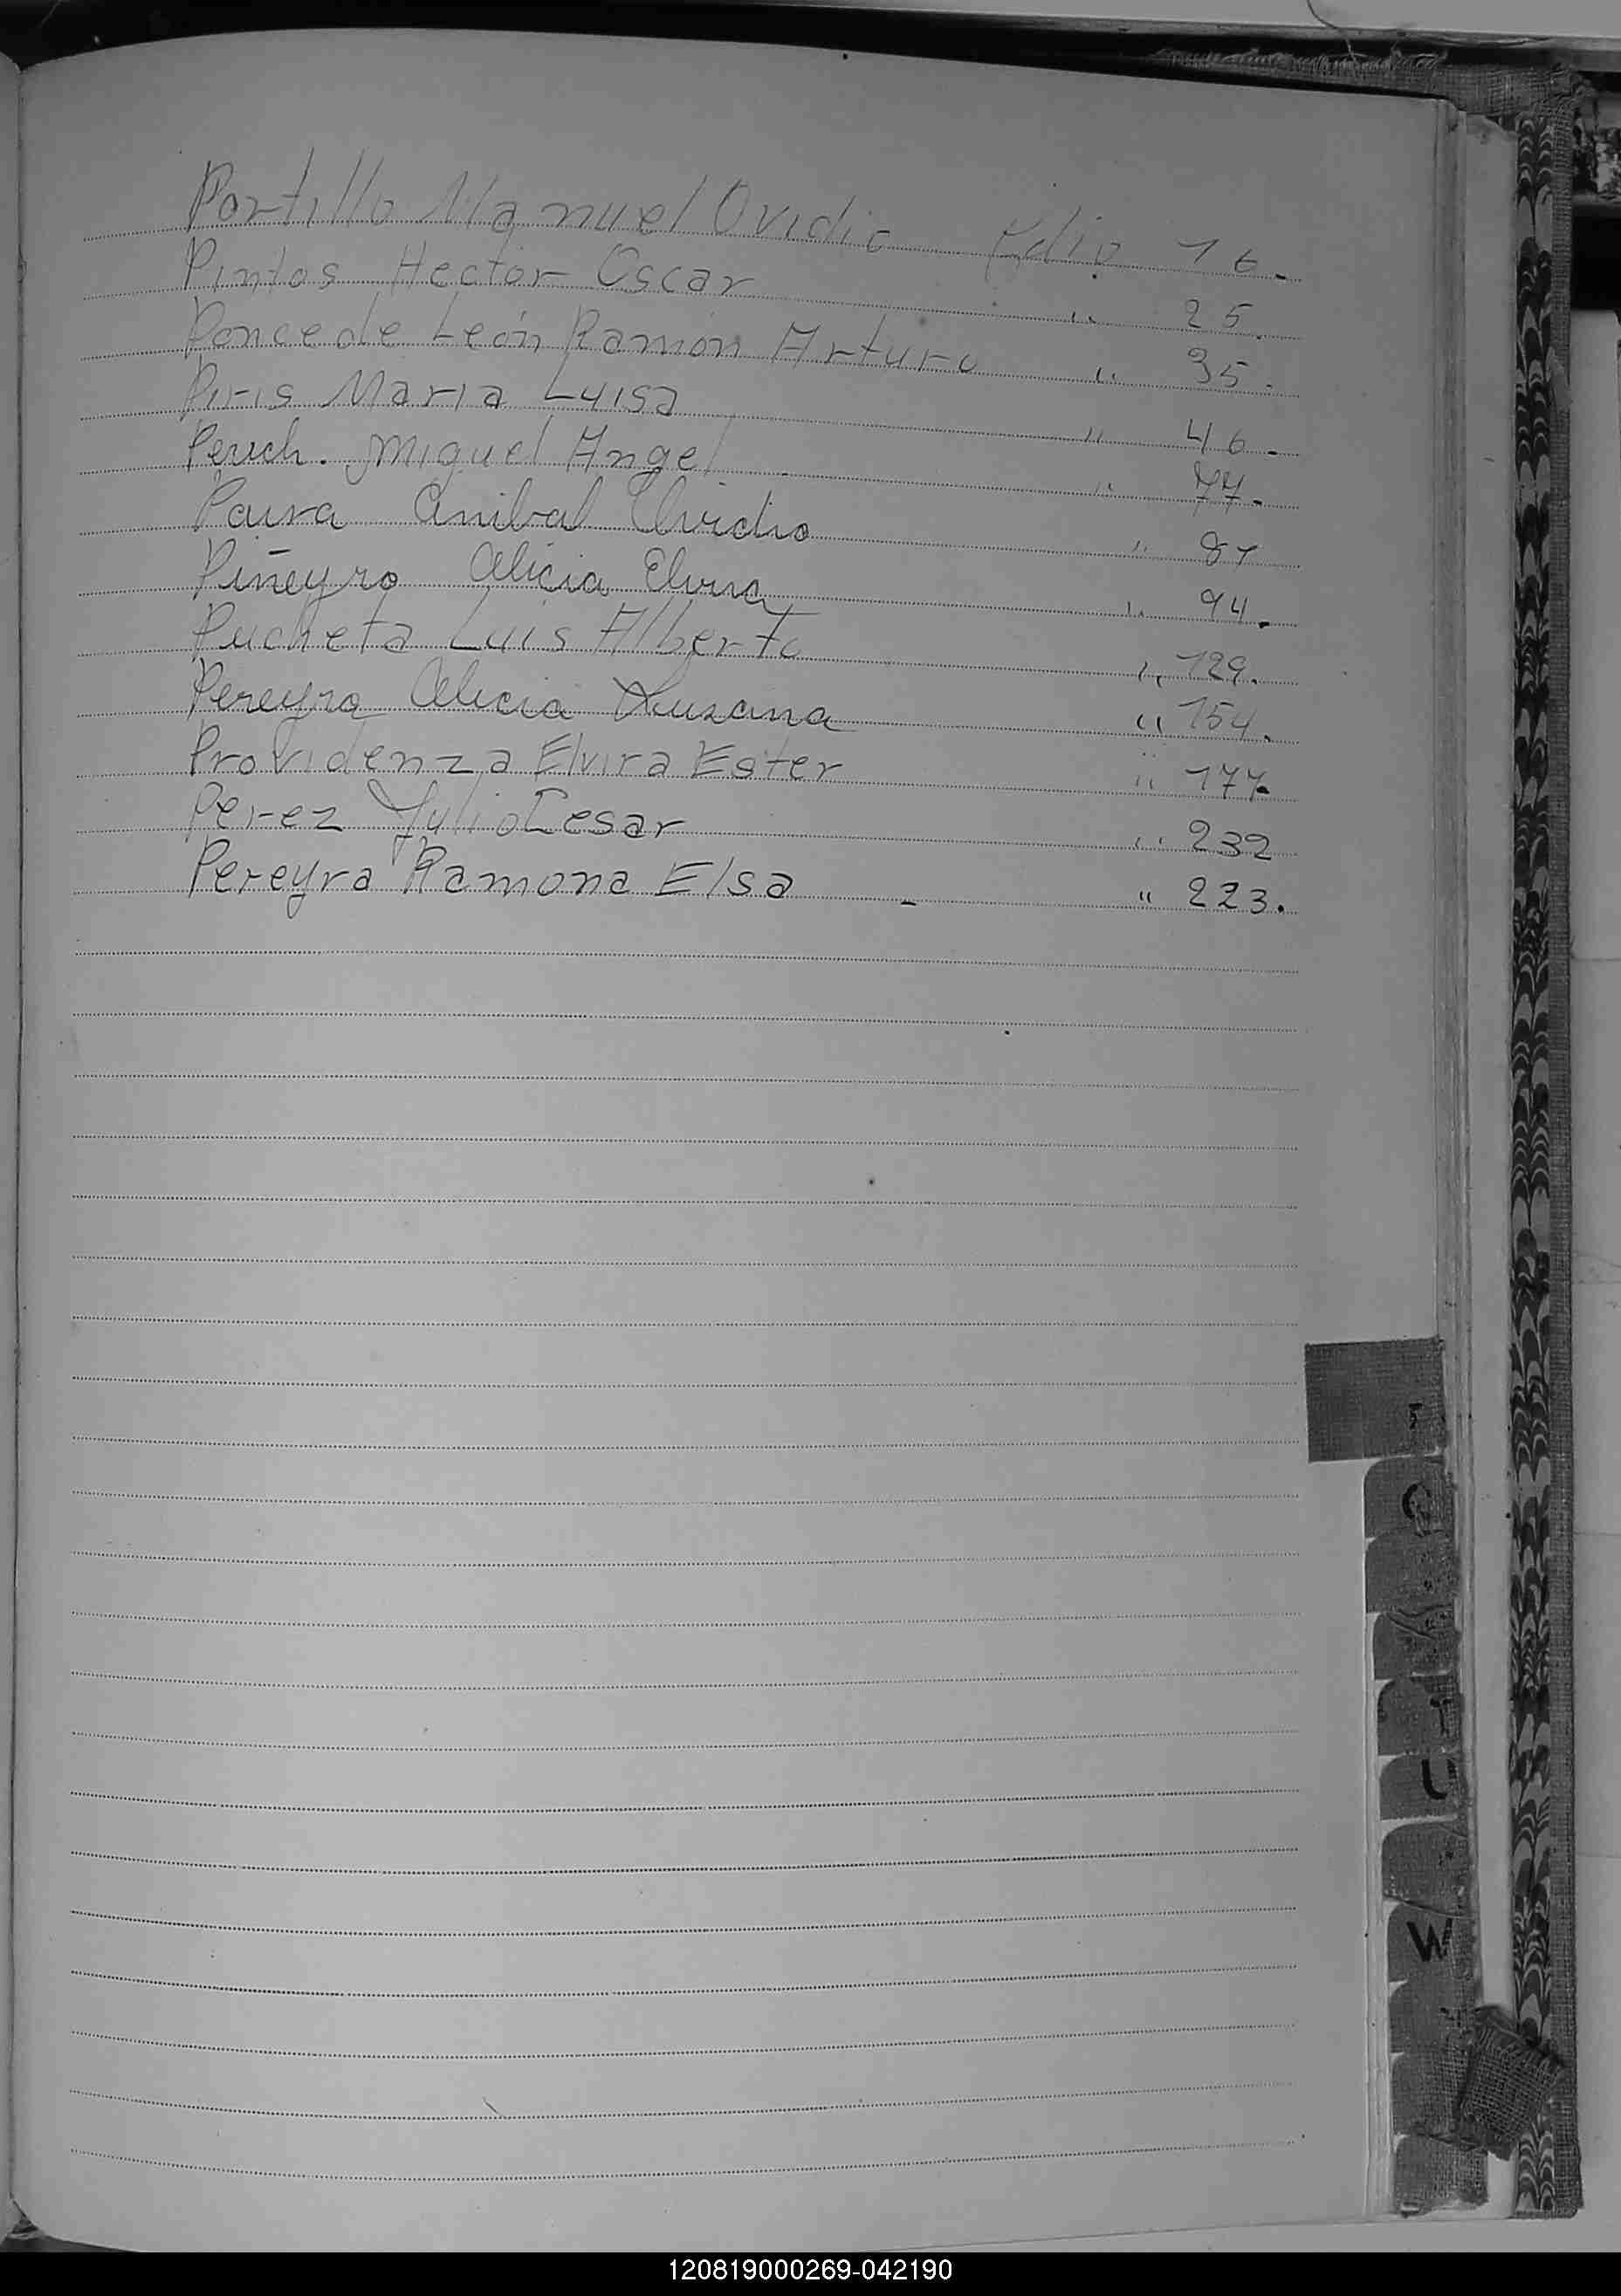 Portillo Manuel Ovidio folio 16.
Pintos Hector Oscar " 25.
Ponce de León Ramón Arturo " 35.
Piris Maria Luisa " 46.
Miguel Angel " 77.
Paiva Anibal Ovidio " 87
Piñeyro Alicia Elvira " 94.
Pucheta Luis Alberto " 129.
Pereyra Alicia Susana " 154.
Providenza Elvira Ester " 177.
Perez Julio Cesar " 232
Pereyra Ramona Elsa - " 223.
U
W
120819000269-042190